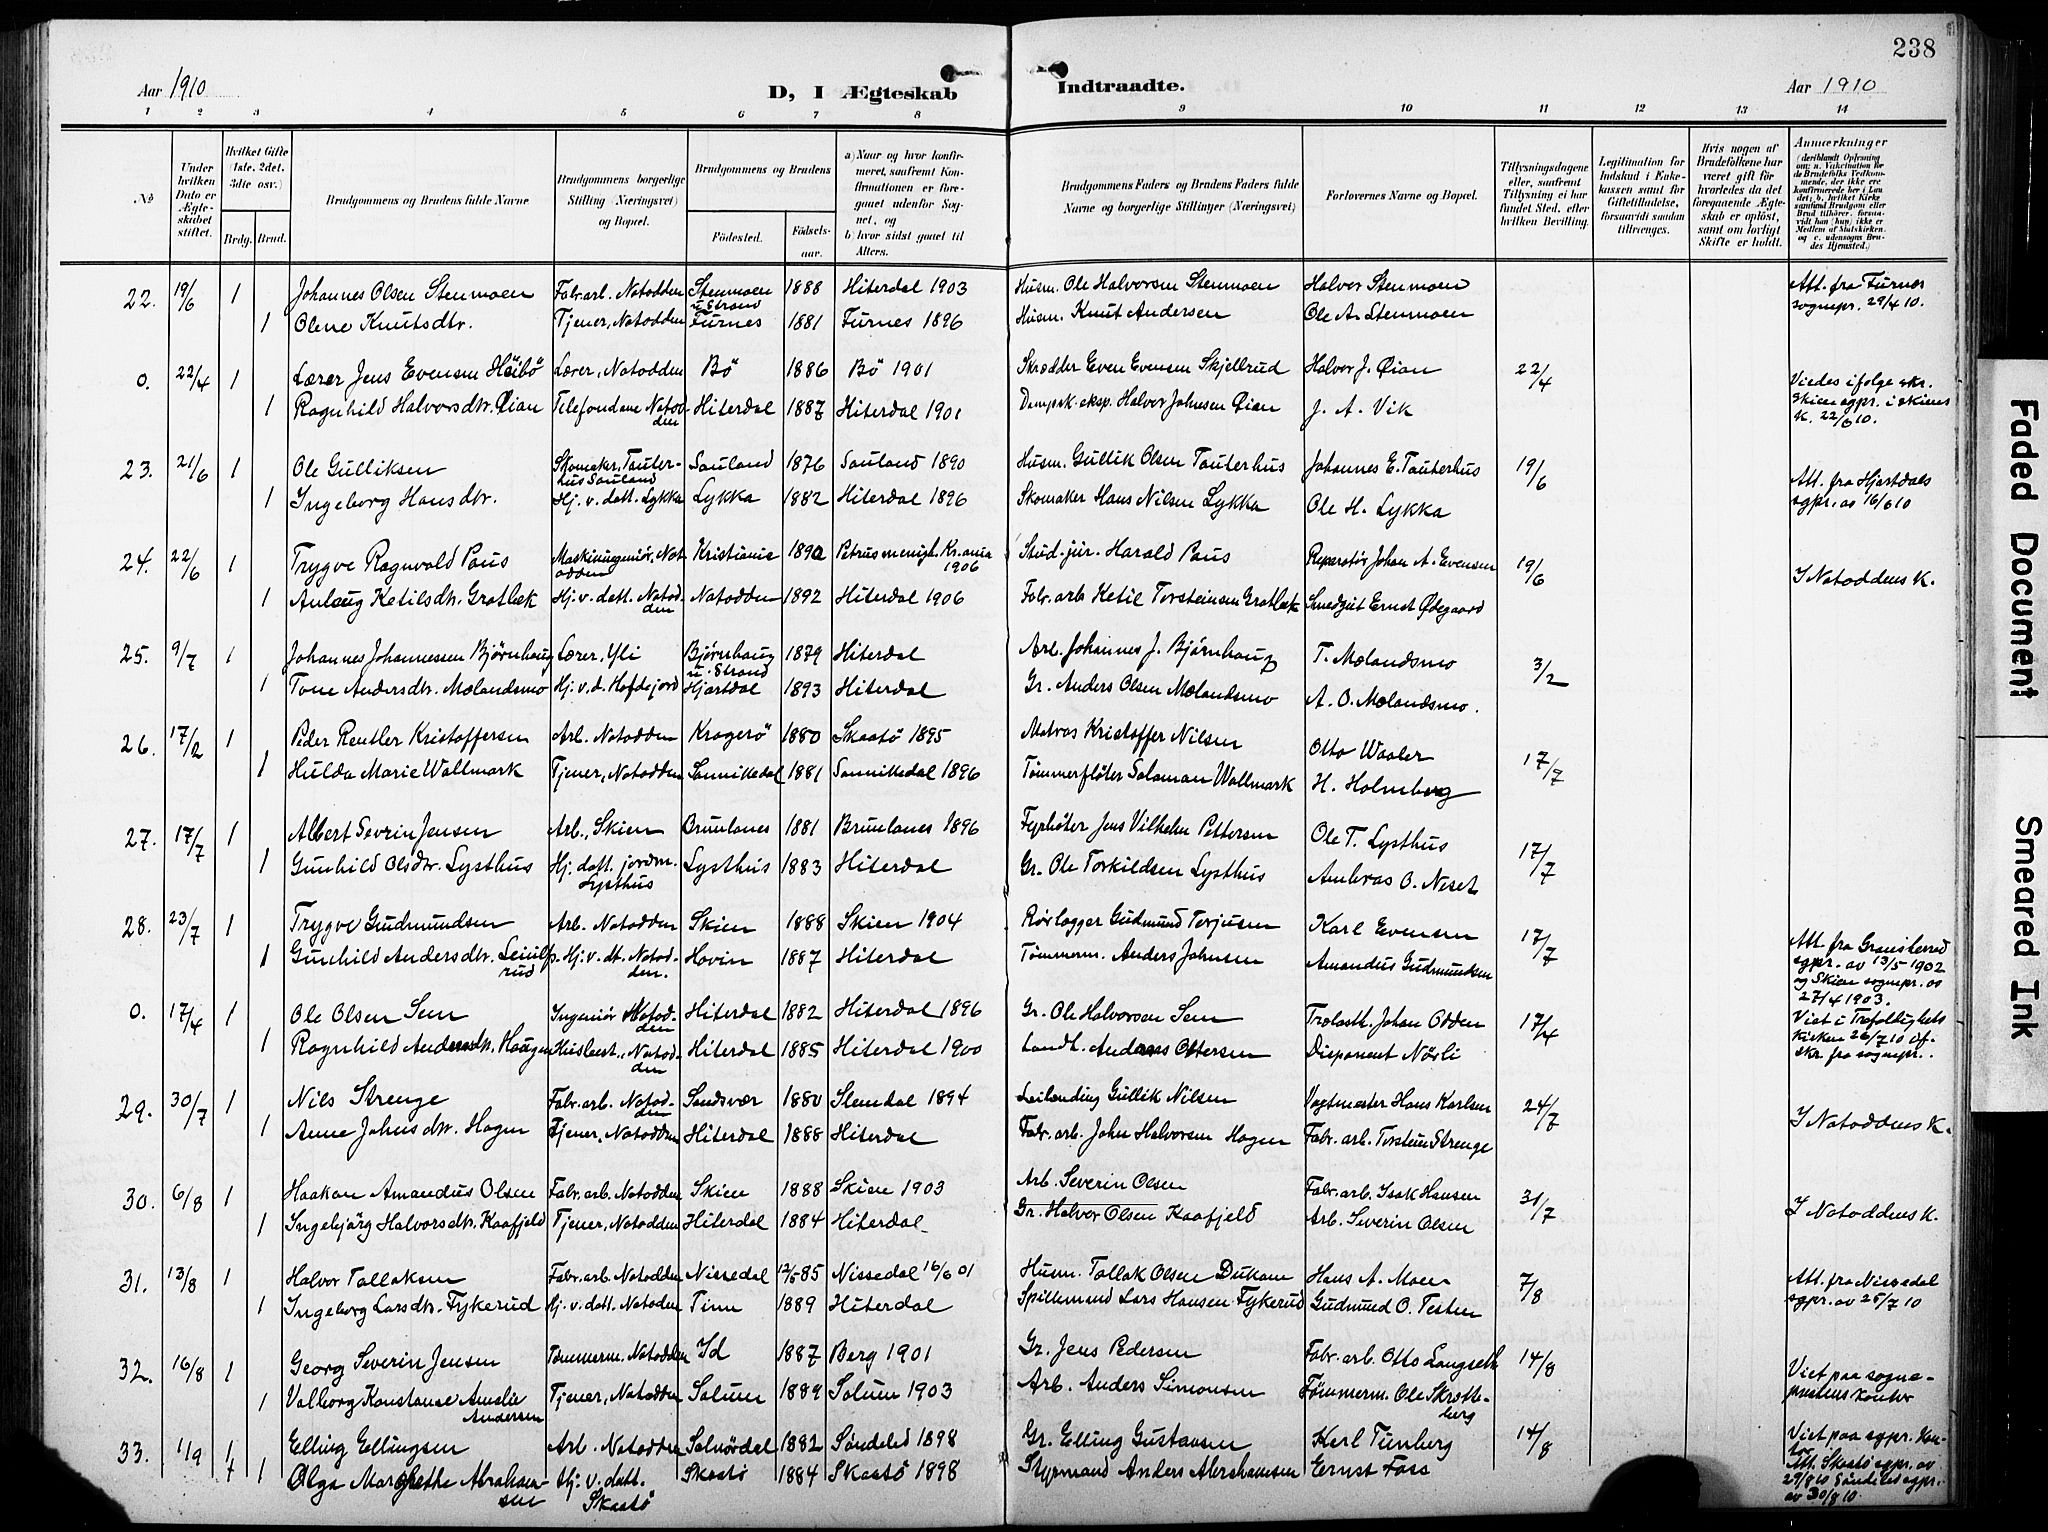 238
Aar 1910
D, I Ægteskab Indtraadte.
Aar 1910
1 2 3 4 5 6 7 8 9 10 11 12 13 14
No
Under hvilken Dato er Ægteskabet stiftet.
Hvilket Gifte (1ste, 2det, 3die osv.)
Brdg. Brud.
Brudgommens og Brudens fulde Navne
Brudgommens borgerlige Stilling (Næringsvei) og Bopæl.
Brudgommens og Brudens
Fødested. Fødsels-aar.
a) Naar og hvor konfirmeret, saafremt Konfirmationen er foregaaet udenfor Sognet, og
b) hvor sidst gaaet til Alters.
Brudgommens Faders og Brudens Faders fulde Navne og borgerlige Stillinger (Næringsvei)
Forlovernes Navne og Bopæl.
Tillysningsdagene eller, saafremt Tillysning ei har fundet Sted, efter hvilken Bevilling.
Legitimation for Indskud i Enkekassen samt for Giftetilladelse, forsaavidt saadan tiltrænges.
Hvis nogen af Brudefolkene har været gift før hvorledes da det foregaaende Ægteskab er opløst, samt om lovligt Skifte er holdt.
Anmærkninger
22. 19/6 1 Johannes Olsen Stenmoen Fabr.arb. Notodden Stenmoen u. Strand 1888 Hiterdal 1903 Husm. Ole Halvorsen Stenmoen Halvor Stenmoen Att. fra Furnes sognepr. 29/4 10.
1 Olene Knutsdtr. Tjener, Notodden Furnes 1881 Furnes 1896 Husm. Knut Andersen Ole A. Stenmoen
0. 22/4 1 Lærer Jens Evensen Höibö Lærer, Notodden Bö 1886 Bö 1901 Skrædder Even Evensen Skjellrud Halvor J. Øian 22/4 Viedes ifølge skr. Skien sgpr. i Skiens K. 22/6 10.
1 Ragnhild Halvorsdtr. Øian Telefondame Notodden Hiterdal 1887 Hiterdal 1901 Dampsk.eksp. Halvor Johnsen Øian J. A. Vik
23. 21/6 1 Ole Gulliksen Skomaker, Tauterhus Sauland Sauland 1876 Sauland 1890 Husm. Gullik Olsen Tauterhus Johannes E. Tauterhus 19/6 Att. fra Hjartdals sgpr. av 16/6 10
1 Ingeborg Hansdtr. Hj. v. datt. Lykka Lykka 1882 Hiterdal 1896 Skomaker Hans Nilsen Lykka Ole H. Lykka
24. 22/6 1 Trygve Ragnvald Paus Maskiningeniör, Notodden Kristiania 1890 Petrus menigh. Kr.ania 1906 Stud. jur. Harald Paus Reparatör Johan A. Evensen 19/6 I Notoddens K.
1 Aulaug Ketilsdtr. Grotbæk Hj. v. datt. Notodden Notodden 1892 Hiterdal 1906 Fabr. arb Ketil Torsteinsen Grotbæk Smedgut Ernst Ødegaard
25. 9/7 1 Johannes Johannessen Bjørnhaug Lærer, Yli Bjørnhaug u. Strand 1879 Hiterdal Arb. Johannes J. Bjørnhaug T. Mælandsmo 3/2
1 Tone Andersdtr. Mælandsmo Hj. v. d. Hofdejord Hjartdal 1893 Hiterdal Gr. Anders Olsen Mælandsmo A. O. Mælandsmo.
26. 17/2 1 Peder Rentler Kristoffersen Arb. Notodden Kragerö 1880 Skaatö 1895 Matros Kristoffer Nilsen Otto Waaler 17/7
1 Hulda Marie Wallmark Tjener, Notodden Sannikedal 1881 Sannikedal 1896 Tømmerfløter Salaman Wallmark H. Holmberg
27. 17/7 1 Albert Severin Jensen Arb., Skien Brunlanes 1881 Brunlanes 1896 Fyrböter Jens Vilhelm Pettersen Ole T. Lysthus 17/7
1 Gunhild Olsdtr. Lysthus Hj. datt. jordm. Lysthus Lysthus 1883 Hiterdal Gr. Ole Torkildsen Lysthus Ambros O. Neset
28. 23/7 1 Trygve Gudmundsen Arb. Notodden Skien 1888 Skien 1904 Rörlægger Gudmund Terjusen Karl Evensen 17/7 Att. fra Gransherred sgpr. av 13/5 1902 og Skien sognepr. av 27/4 1903.
1 Gunhild Andersdtr. Hj. v. dt. Notodden. Hovin 1887 Hiterdal Tömmerm. Anders Johnsen Amandus Gudmundsen
0. 17/4 1 Ole Olsen Sem Ingeniör Notodden Hiterdal 1882 Hiterdal 1896 Gr. Ole Halvorsen Sem Trælasth. Johan Odden 17/4 Viet i Trefoldighets Kirken 26/7 10 if. skr. fra sognepr.
1 Ragnhild Andersdtr. Haugen Notodden Hiterdal 1885 Hiterdal 1900 Landh. Anders Ottersen Disponent Nörli
29. 30/7 1 Nils Strenge Fabr. arb. Notodden Sandsvær 1880 Slemdal 1894 Leilending Gullik Nilsen Vagtmester Hans Karlsen 24/7 I Notoddens K.
1 Anne Johnsdtr. Hagen Tjener, Notodden Hiterdal 1888 Hiterdal Fabr. arb. John Halvorsen Hagen Fabr. arb. Torstein Strenge
30. 6/8 1 Haakon Amandus Olsen Fabr. arb. Notodden Skien 1888 Skien 1903 Arb. Severin Olsen Fabr. arb. Isak Hansen 31/7 I Notoddens K.
1 Ingebjörg Halvorsdtr. Kaafjeld Tjener, Notodden Hiterdal 1884 Hiterdal Gr. Halvor Olsen Kaafjeld Arb. Severin Olsen
31. 13/8 1 Halvor Tallaksen Fabr. arb. Notodden Nissedal 12/5 85 Nissedal 16/6 01 Husm. Tallak Olsen Dukam Hans A. Moen 7/8 Att. fra Nissedal sgpr. av 25/7 10
1 Ingeborg Larsdtr. Fykerud Hj. v. datt. Notodden Tinn 1889 Hiterdal Spillemand Lars Hansen Fykerud Gudmund O. Testen
32. 16/8 1 Georg Severin Jensen Tømmerm. Notodden Id 1887 Berg 1901 Gr. Jens Pedersen Fabr. arb. Otto Langseth 14/8 Viet paa sogneprestens kontor
1 Valborg Konstanse Amelie Andersen Tjener, Notodden Solum 1889 Solum 1903 Arb. Anders Simonsen Tømmerm. Ole Skrotteberg
33. 1/9 1 Elling Ellingsen Arb. Notodden 1882 Søndeled 1898 Gr. Elling Gustavsen Karl Tunberg 14/8 Viet paa sgpr. kontor Att. Skaatö sgpr. av 29/8 10 Søndeled sgpr. av 30/8 10
1 Olga Margrethe Abrahamsen Hj. v. datt. Skaatö Skaatö 1884 Skaatö 1898 Styrmand Anders Abrahamsen Ernst Foss
Faded Document
Smeared Ink